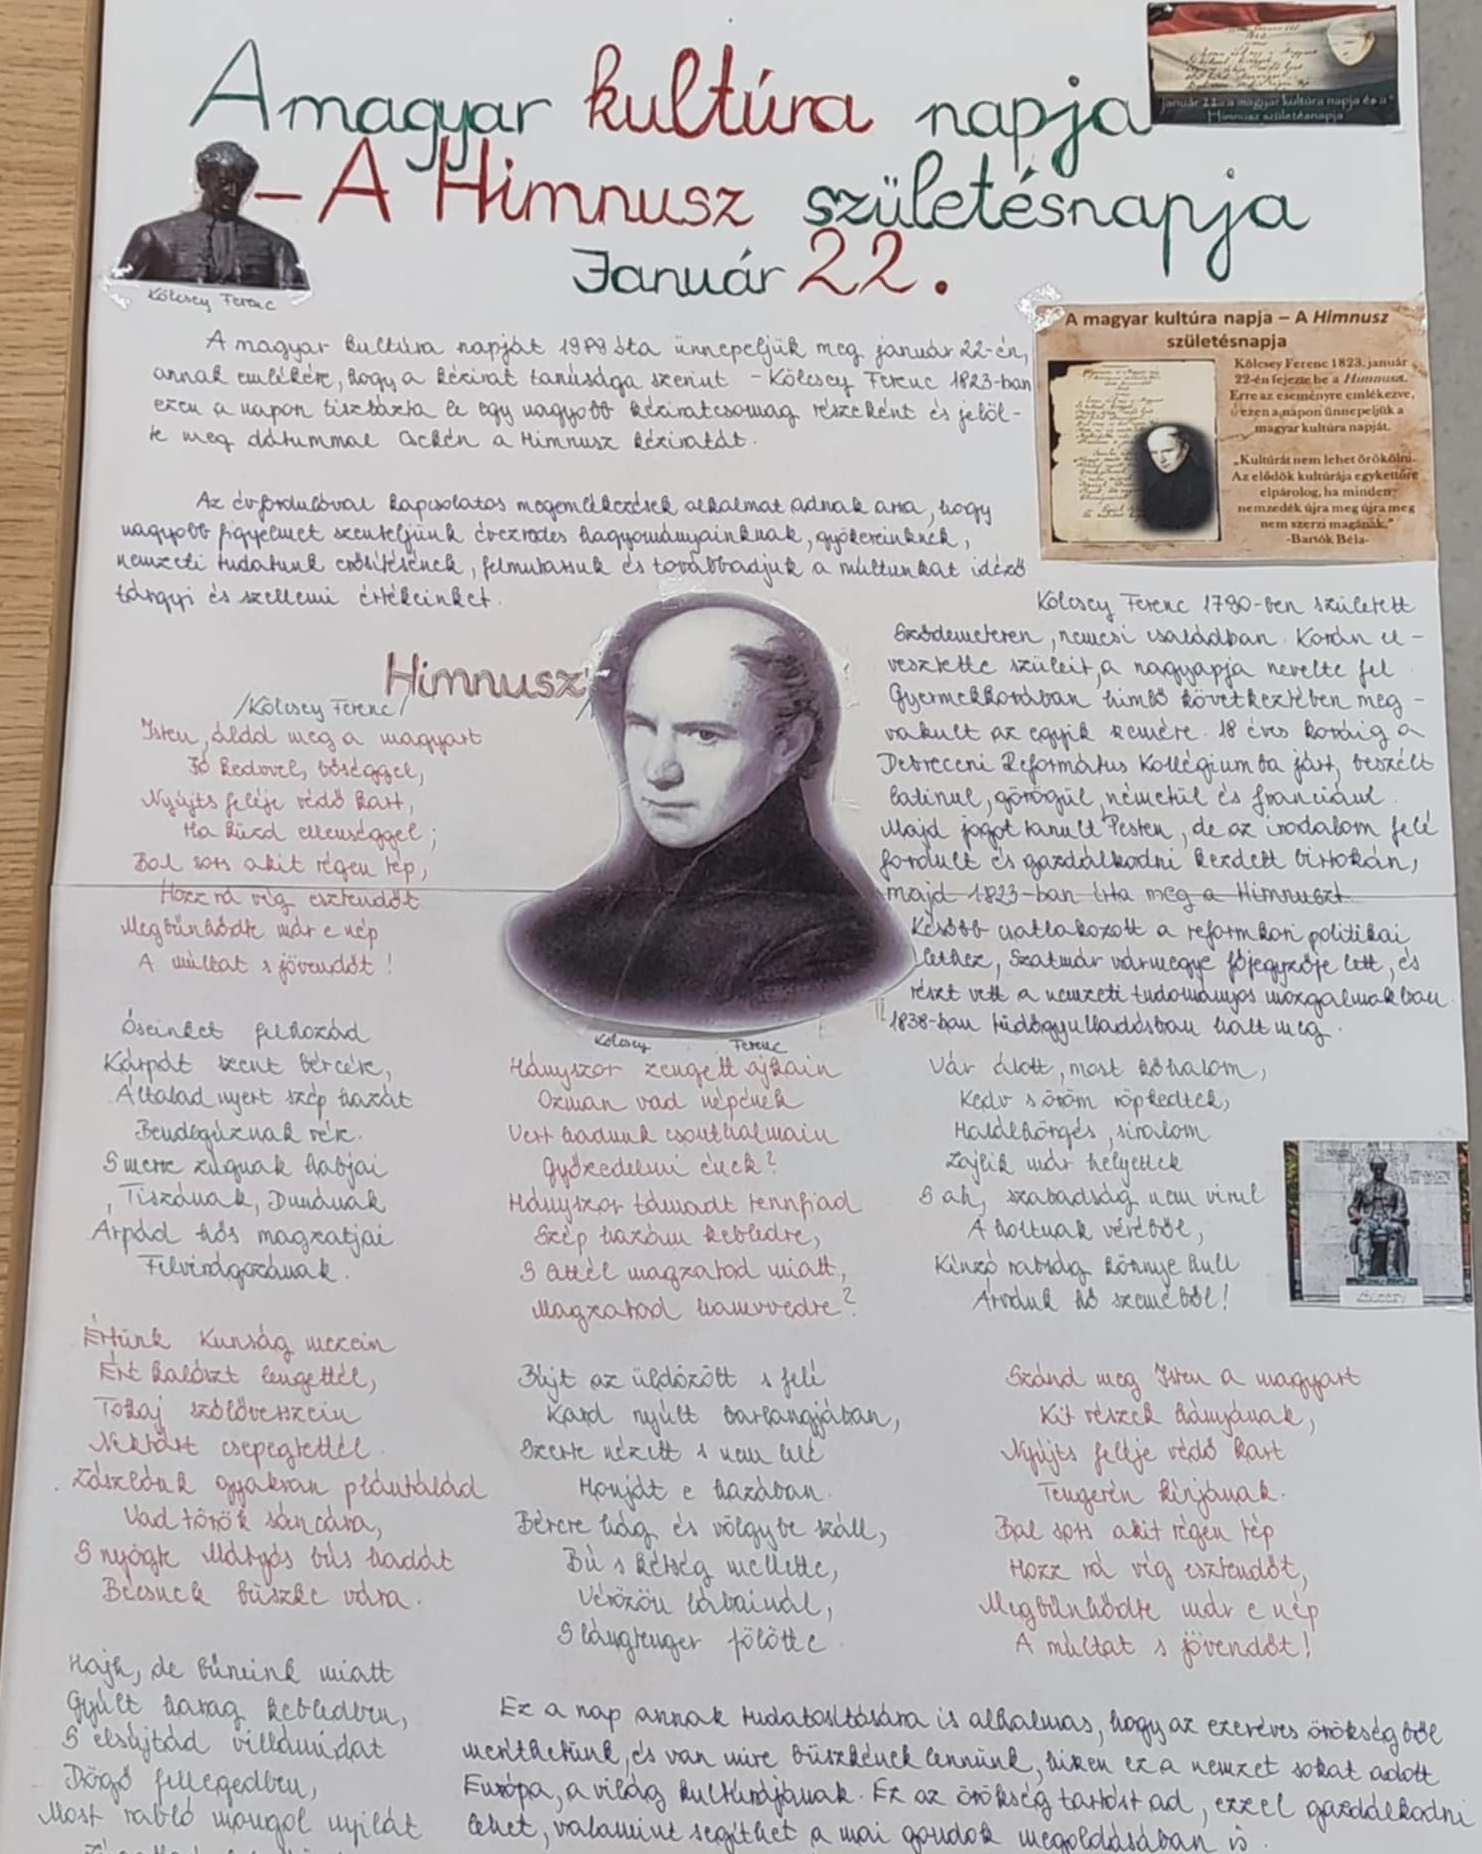 A magyar kultúra napja
– A Himnusz születésnapja
Január 22.
"január 22-a a magyar kultúra napja és a"
Himnusz születésnapja
Kölcsey Ferenc
A magyar kultúra napját 1989 óta ünnepeljük meg január 22-én,
annak emlékére, hogy a kézirat tanúsága szerint – Kölcsey Ferenc 1823-ban
ezen a napon tisztázta le egy nagyobb kéziratcsomag részeként és jelöl-
te meg dátummal Csekén a Himnusz kéziratát.
A magyar kultúra napja – A Himnusz
születésnapja
Kölcsey Ferenc 1823. január
22-én fejezte be a Himnusz.
Erre az eseményre emlékezve,
ezen a napon ünnepeljük a
magyar kultúra napját.
„Kultúrát nem lehet örökölni.
Az elődök kultúrája egykettőre
elpárolog, ha minden
nemzedék újra meg újra meg
nem szerzi magának."
-Bartók Béla-
Az évfordulóval kapcsolatos megemlékezések alkalmat adnak arra, hogy
nagyobb figyelmet szenteljünk évezredes hagyományainknak, gyökereinknek,
nemzeti tudatunk erősítésének, felmutassuk és továbbadjuk a múltunkat idéző
tárgyi és szellemi értékeinket.
Kölcsey Ferenc 1790-ben született
Sződemeteren, nemesi családban. Korán el-
vesztette szüleit, a nagyapja nevelte fel
Gyermekkorában himlő következtében meg-
vakult az egyik szemére. 18 éves koráig a
Debreceni Református Kollégiumba járt, beszélt
latinul, görögül, németül és franciául.
Majd jogot tanult Pesten, de az irodalom felé
fordult és gazdálkodni kezdett birtokán,
majd 1823-ban írta meg a Himnuszt.
Később csatlakozott a reformkori politikai
élethez, Szatmár vármegye főjegyzője lett, és
részt vett a nemzeti tudományos mozgalmakban.
1838-ban tüdőgyulladásban halt meg.
Himnusz
/Kölcsey Ferenc/
Isten, áldd meg a magyart
Jó kedvel, bőséggel,
Nyújts feléje védő kart,
Ha küzd ellenséggel;
Bal sors akit régen tép,
Hozz rá víg esztendőt
Megbűnhődte már e nép
A múltat s jövendőt!
Őseinket felhozád
Kárpát szent bércére,
Általad nyert szép hazát
Bendegúznak vére.
S merre zúgnak habjai
Tiszának, Dunának
Árpád hős magzatjai
Felvirágozának.
Értünk Kunság mezein
Ért kalászt lengettél,
Tokaj szőlővesszein
Nektárt csepegtettél.
Zászlónk gyakran plántálád
Vad török sáncára,
S nyögte Mátyás bús hadát
Bécsnek büszke vára.
Hajh, de bűneink miatt
Gyúlt harag kebledben,
S elsújtád villámidat
Dörgő fellegedben,
Most rabló mongol nyilát
Kölcsey Ferenc
Hányszor zengett ajkain
Ozman vad népének
Vert hadunk csonthalmain
Győzedelmi ének?
Hányszor támadt tennfiad
Szép hazám kebledre,
S lettél magzatod miatt,
Magzatod hamvvedre?
Bújt az üldözött s felé
Kard nyúlt barlangjában,
Szerte nézett s nem lelé
Honját e hazában.
Bércre hág és völgybe száll,
Bú s kétség mellette,
Vérözön lábainál,
S lángtenger fölötte.
Vár állott, most kőhalom,
Kedv s öröm röpkedtek,
Halálhörgés, siralom
Zajlik már helyettek
S ah, szabadság nem virul
A holtnak véréből,
Kínzó rabság könnye hull
Árvánk hő szeméből!
Szánd meg Isten a magyart
Kit vészek hányának,
Nyújts feléje védő kart
Tengerén kínjának.
Bal sors akit régen tép
Hozz rá víg esztendőt,
Megbűnhődte már e nép
A múltat s jövendőt!
Ez a nap annak tudatosítására is alkalmas, hogy az ezeréves örökségből
meríthetünk, és van mire büszkének lennünk, hiszen ez a nemzet sokat adott
Európa, a világ kultúrájának. Ez az örökség tartást ad, ezzel gazdálkodni
lehet, valamint segíthet a mai gondok megoldásában is.